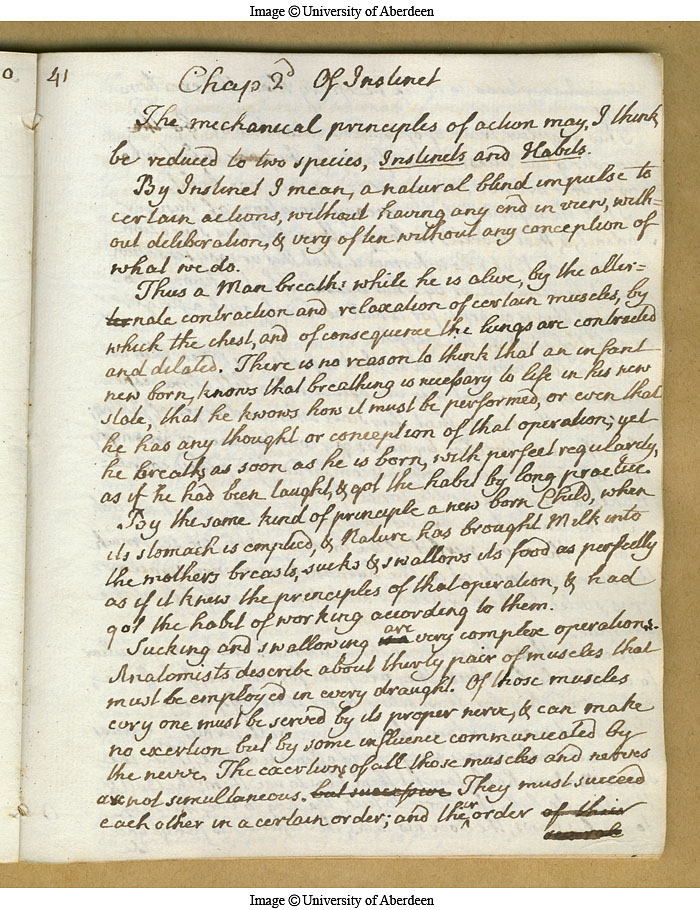 Image © University of Aberdeen
0
41
Chap 2d Of Instinct
The mechanical principles of action may, I think,
be reduced to two species, Instincts and Habits.
By Instinct I mean, a natural blind impulse to
certain actions, without having any end in view, with=
out deliberation, & very often without any conception of
what we do.
Thus a Man breaths while he is alive, by the alter=
nate contraction and relaxation of certain muscles, by
which the chest, and of consequence the lungs are contracted
and dilated. There is no reason to think that an infant
new born, knows that breathing is necessary to life in his new
state, that he knows how it must be performed, or even that
he has any thought or conception of that operation; yet
he breaths as soon as he is born, with perfect regularity,
as if he had been taught, & got the habit by long practice.
By the same kind of principle a new born Child, when
its stomach is emptied, & Nature has brought Milk into
the mothers breasts, sucks & swallows its food as perfectly
as if it knew the principles of that operation, & had
got the habit of working according to them.
Sucking and swallowing are very complex operations.
Anatomists describe about thirty pair of muscles that
must be employed in every draught. Of those muscles
every one must be served by its proper nerve, & can make
no exertion but by some influence communicated by
the nerve. The exertions of all those muscles and nerves
are not simultaneous. but successive They must succeed
each other in a certain order; and their order of their
Image © University of Aberdeen